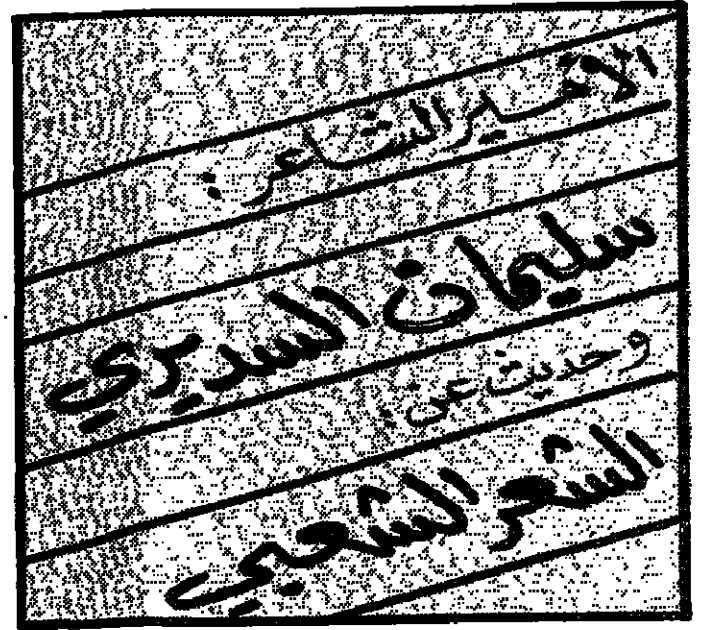 الأمير الشاعر:
سليمان السديري
وحديث عن:
الشعر الشعبي